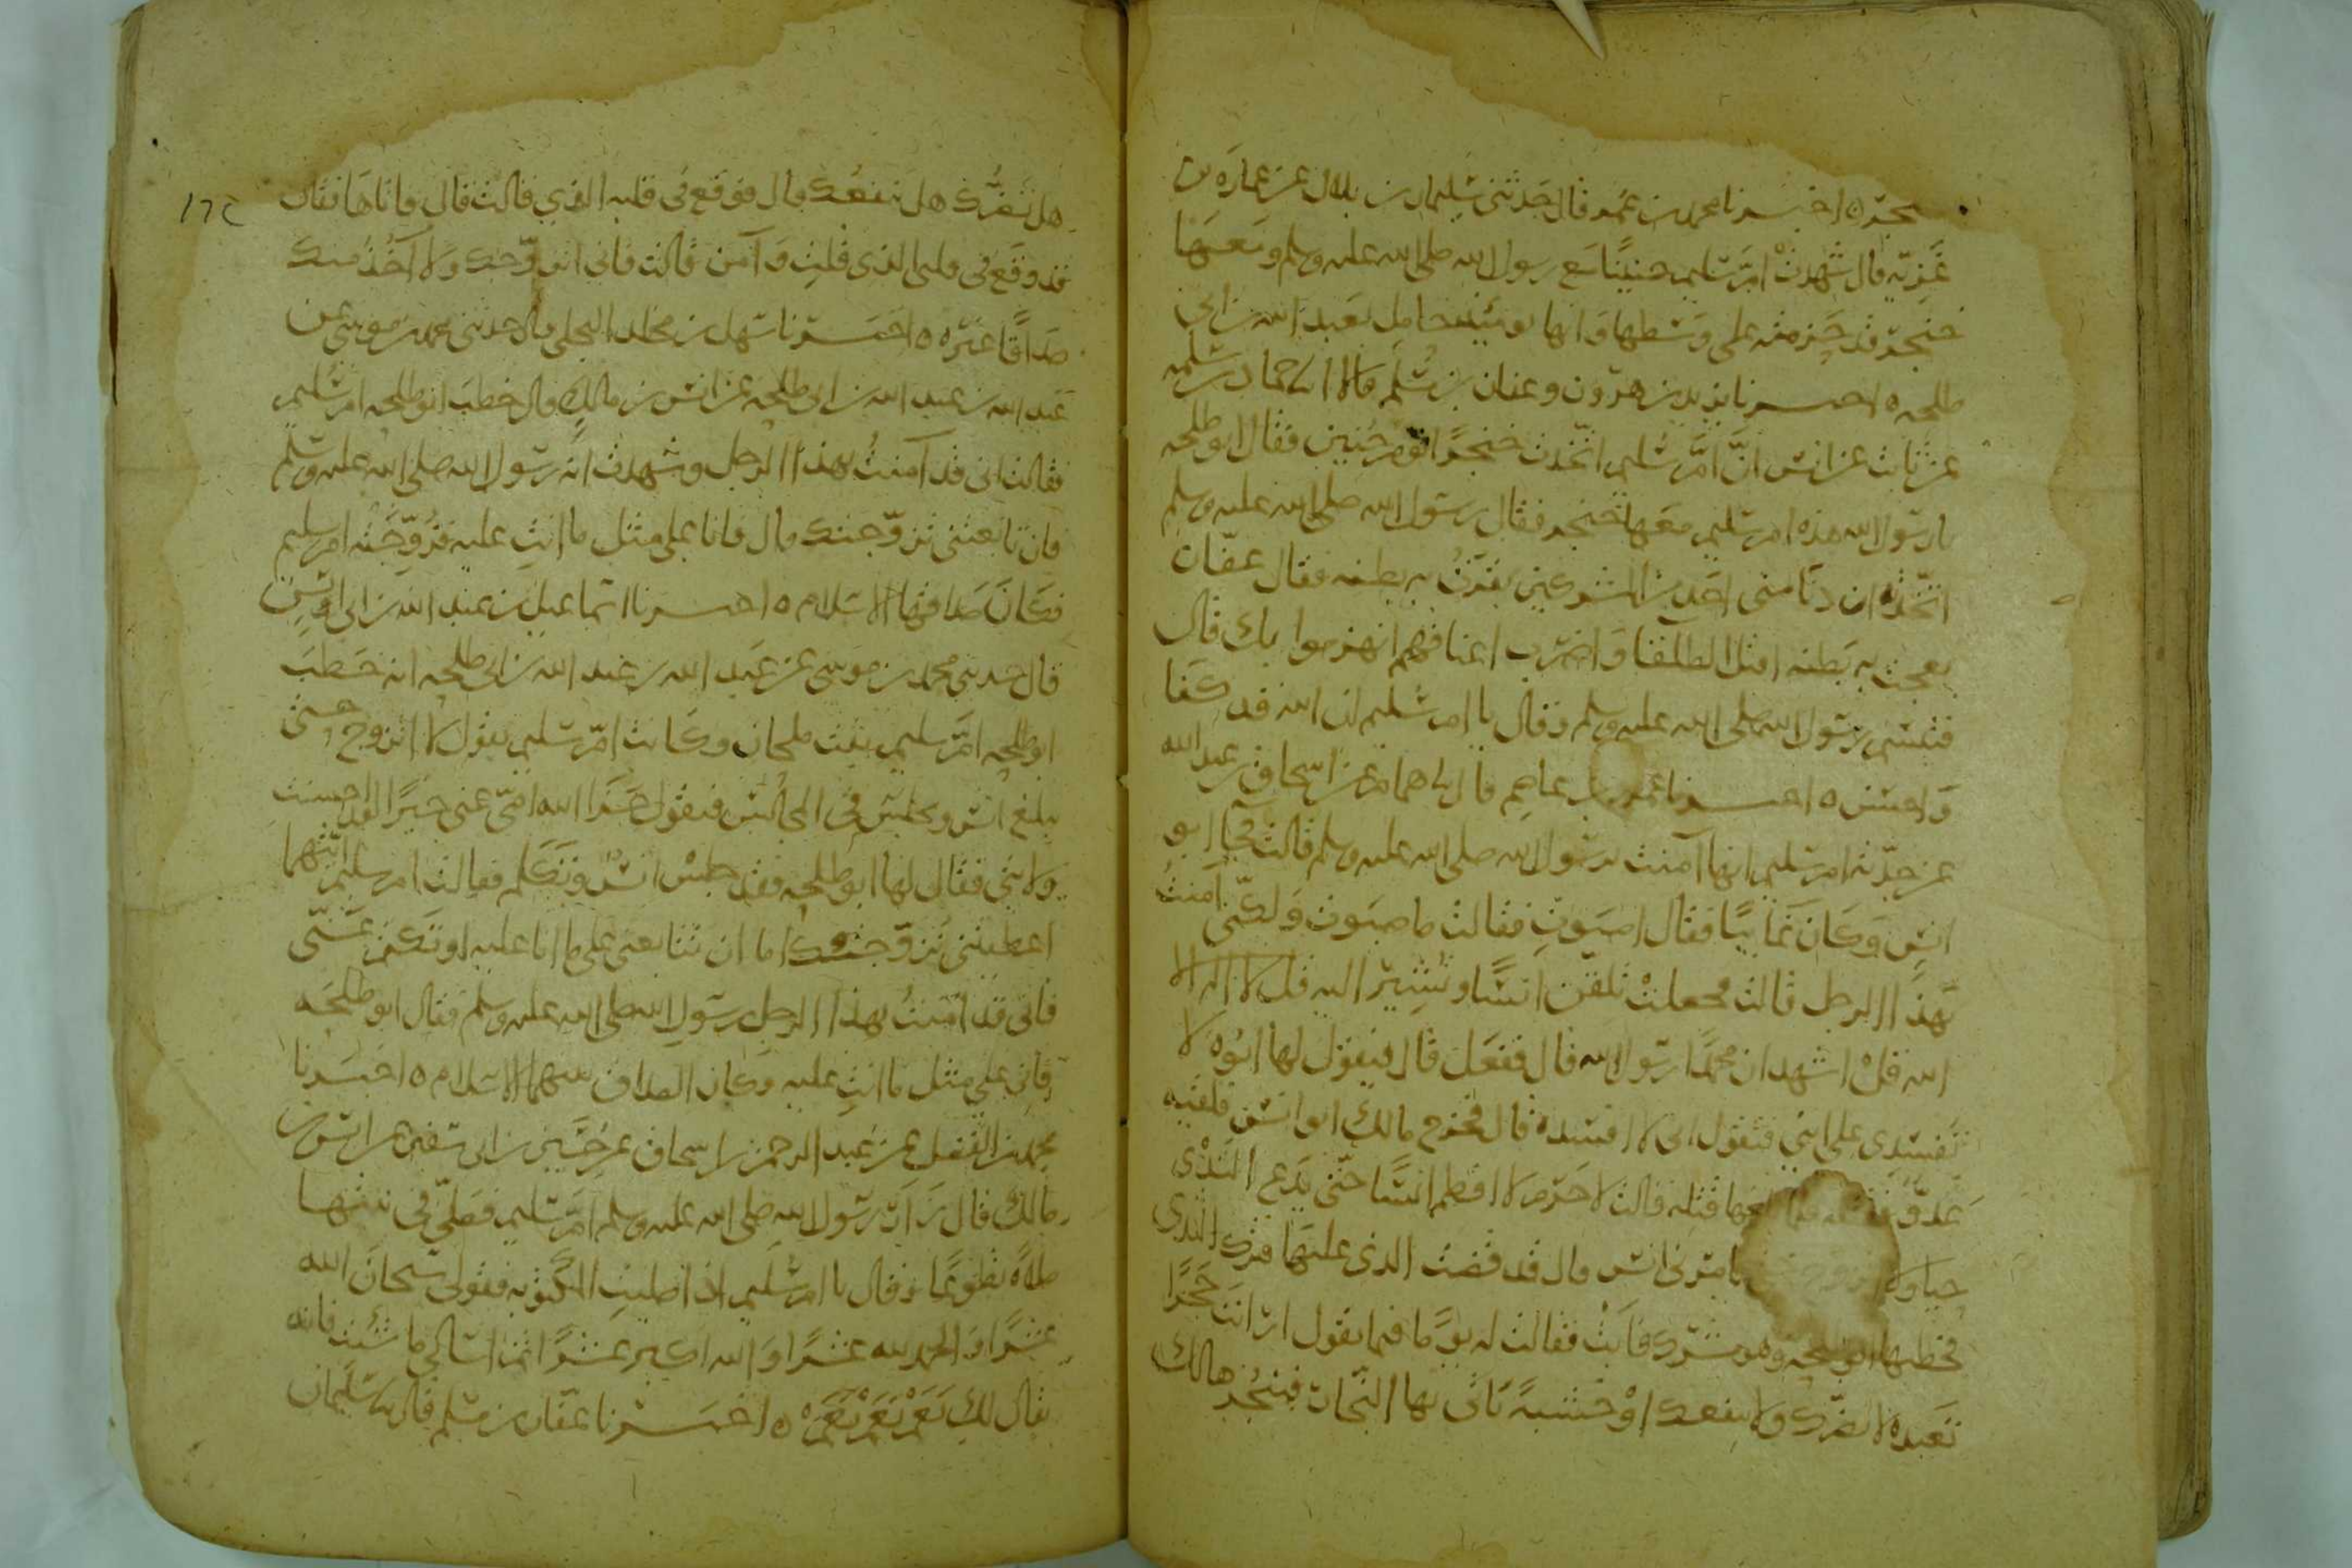 خنجره اخبرنا محمد بن عمر قال حدثني سليمان بن بلال عن عمارة بن
غزية قال شهدت ام سليم حنينا مع رسول الله صلى الله عليه وسلم ومعها
خنجر قد حزمته على وسطها وانها يومئذ حامل بعبد الله بن ابي
طلحه ٥ اخبرنا يزيد بن هرون وعفان بن مسلم قالا انا حماد بن سلمه
عن ثابت عن انس ان ام سليم اتخذت خنجرا يوم حنين فقال ابو طلحه
يا رسول الله هذه ام سليم معها خنجر فقال رسول الله صلى الله عليه وسلم
اتخذته ان دنا مني احد من المشركين بقرت به بطنه فقال عفان
بعجت به بطنه اقتل الطلقا واضرب اعناقهم انهزموا بك قال
فتبسم رسول الله صلى الله عليه وسلم وقال يا ام سليم ان الله قد كفا
واحسن ٥ اخبرنا عمرو بن عاصم قال نا همام عن اسحاق بن عبد الله
عن جدته ام سليم انها آمنت برسول الله صلى الله عليه وسلم قالت فجا ابو
انس وكان غائبا فقال اصبوت فقالت ما صبوت ولكني آمنت
بهذا الرجل قالت فجعلت تلقن انسا وتشير اليه قل لا اله الا
الله قل اشهد ان محمدا رسول الله قال ففعل قال فيقول لها ابوه لا
تفسدي علي ابني فتقول اني لا افسده قال فخرج مالك ابو انس فلقيه
عدو فقتله فلما بلغها قتله قالت لا جرم لا افطم انسا حتى يدع الثدي
حيا ولا يامرني انس قال قد قضت الذي عليها فترك الثدي
فخطبها ابو طلحه وهو مشرك فابت فقالت له يوما فيما يقول ارايت حجرا
تعبده لا يضرك ولا ينفعك او خشبة تاتي بها النجار فينجرها لك
١٦٢
هل تضرك هل تنفعك قال فوقع في قلبه الذي قالت قال فاتاها فقال
قد وقع في قلبي الذي قلت وآمن قالت فاني اتزوجك ولا آخذ منك
صداقا غيره ٥ اخبرنا سهل بن مخلد البجلي قال حدثني محمد بن موسى عن
عبد الله بن عبد الله بن ابي طلحه عن انس بن مالك قال خطب ابو طلحه ام سليم
فقالت اني قد آمنت بهذا الرجل وشهدت انه رسول الله صلى الله عليه وسلم
فان تابعتني تزوجتك قال فانا على مثل ما انت عليه فتزوجته ام سليم
فكان صداقها الاسلام ٥ اخبرنا اسماعيل بن عبد الله بن ابي اويس
قال حدثني محمد بن موسى عن عبد الله بن عبد الله بن ابي طلحه انه خطب
ابو طلحه ام سليم بنت ملحان وكانت ام سليم تقول لا اتزوج حتى
يبلغ انس ويجلس في المجالس فيقول جزا الله امي عني خيرا لقد احسنت
ولايتي فقال لها ابو طلحه فقد جلس انس وتكلم فقالت ام سليم ايتهما
اعطيتني تزوجتك اما ان تتابعني على ما انا عليه او تكتم عني
فاني قد آمنت بهذا الرجل رسول الله صلى الله عليه وسلم فقال ابو طلحه
فاني على مثل ما انت عليه وكان الصداق بينهما الاسلام ٥ اخبرنا
محمد بن الفضيل عن عبد الرحمن بن اسحاق عن حسين بن ابي سفين عن انس بن
مالك قال زار رسول الله صلى الله عليه وسلم ام سليم فصلى في بيتها
صلاة تطوعا وقال يا ام سليم اذا صليت المكتوبه فقولي سبحان الله
عشرا والحمد لله عشرا والله اكبر عشرا ثم اسالي ما شئت فانه
يقال لك نعم نعم نعم ٥ اخبرنا عفان بن مسلم قال نا سليمان